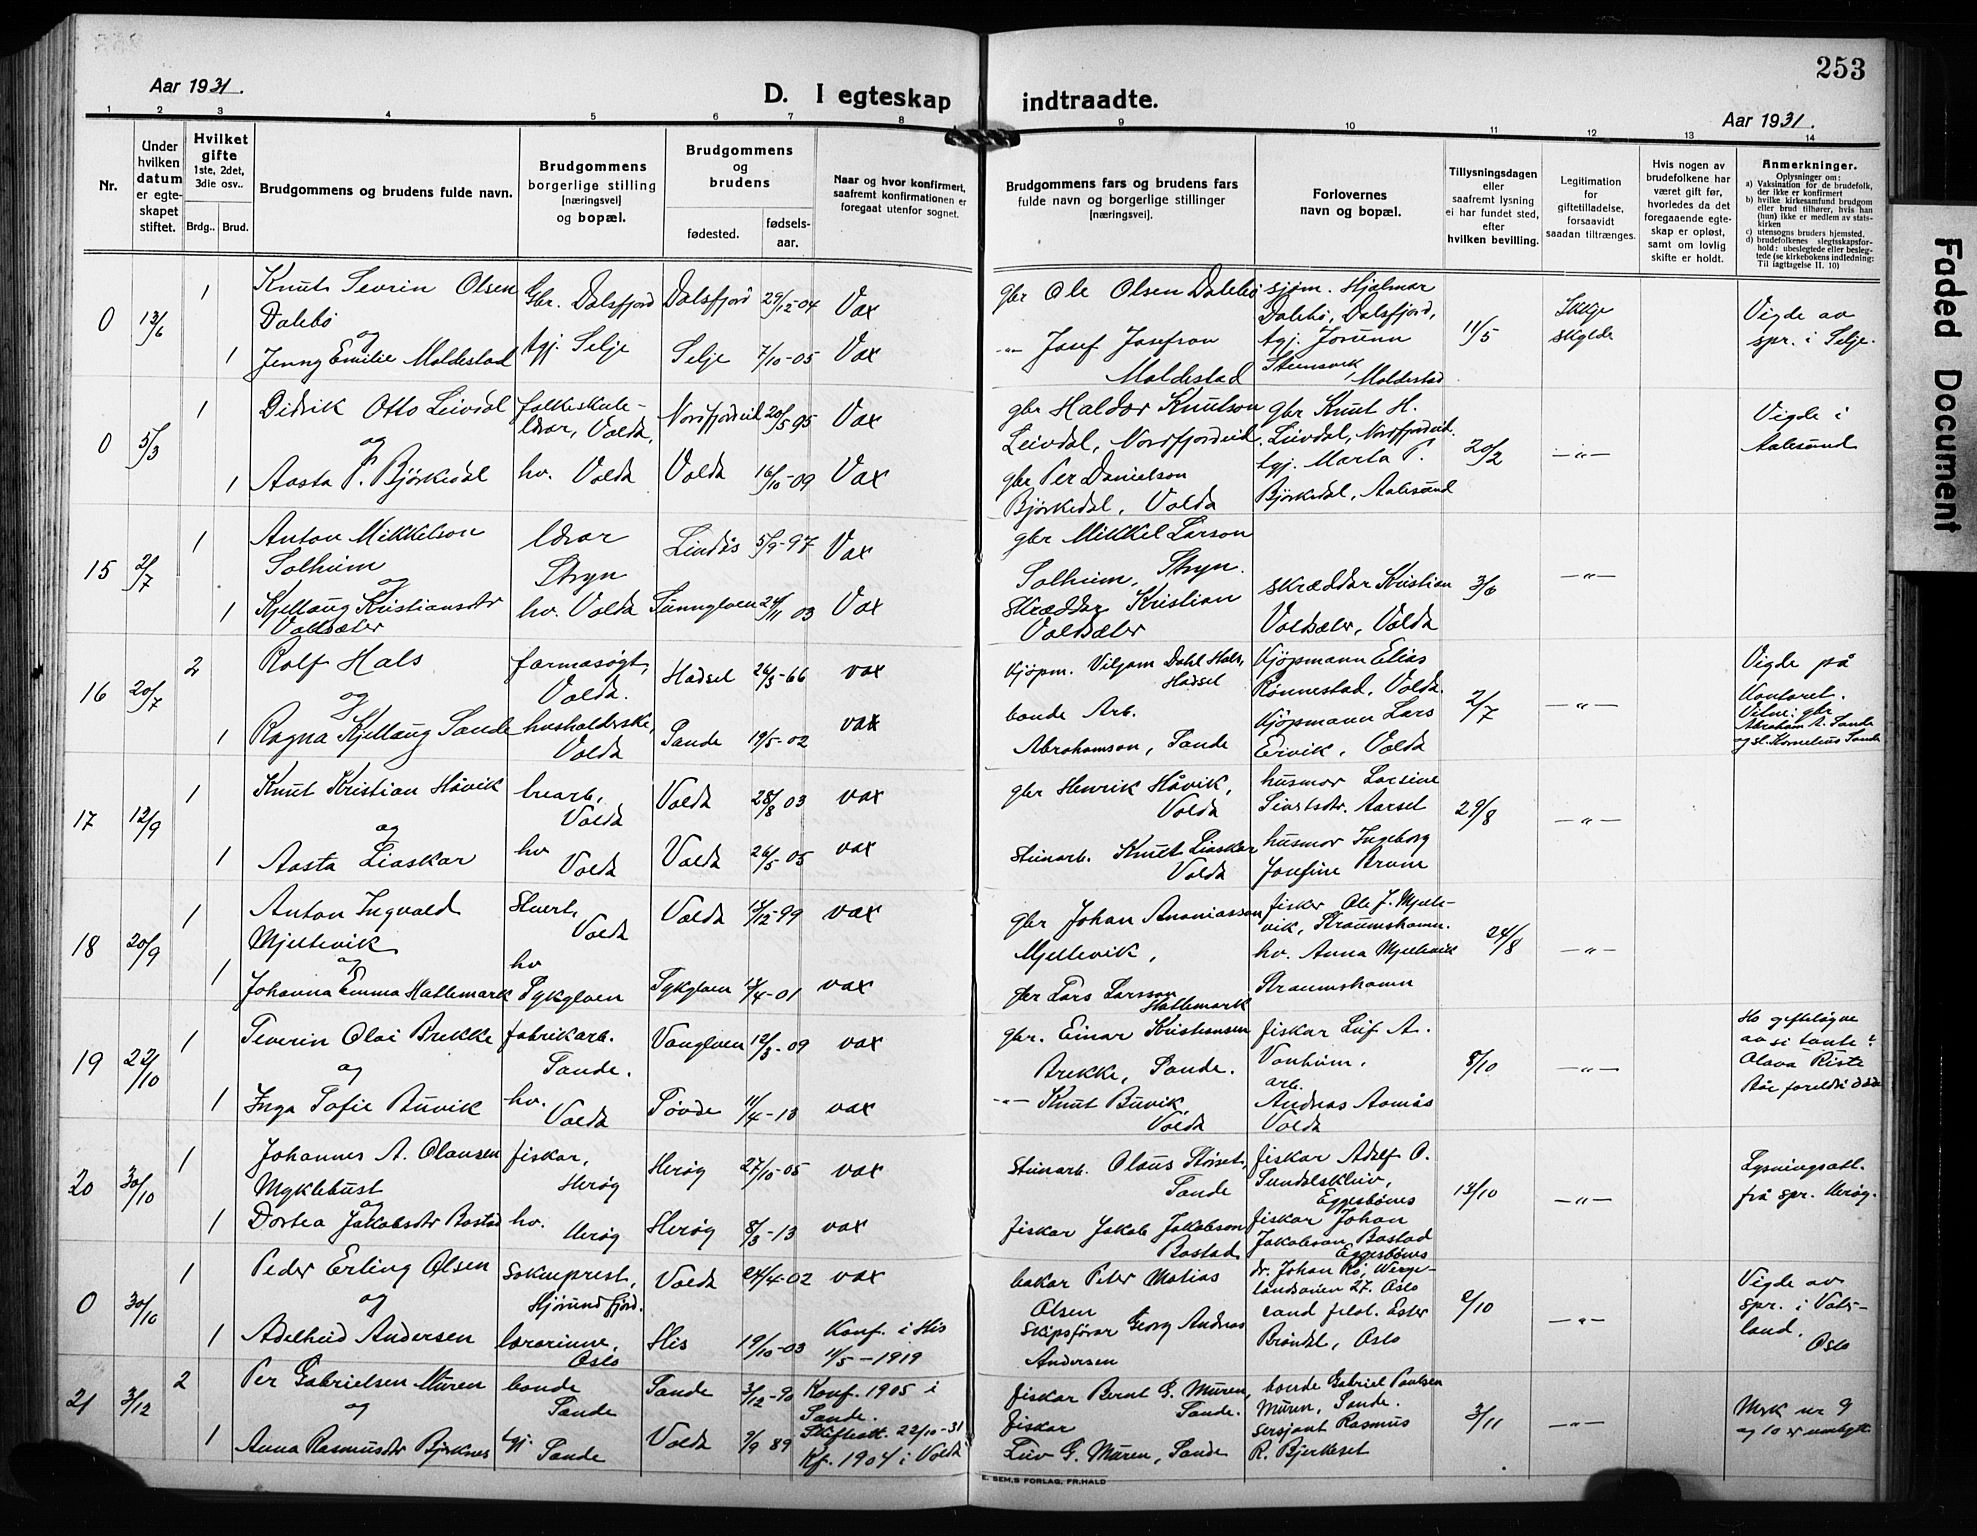 253
Aar 1931.
D. I egteskap indtraadte.
Aar 1931.
1 2 3 4 5 6 7 8 9 10 11 12 13 14
Nr.
Under hvilken datum er egteskapet stiftet.
Hvilket gifte 1ste, 2det, 3die osv..
Brdg.. Brud.
Brudgommens og brudens fulde navn.
Brudgommens borgerlige stilling [næringsvei] og bopæl.
Brudgommens og brudens
fødested. fødselsaar.
Naar og hvor konfirmert, saafremt konfirmationen er foregaat utenfor sognet.
Brudgommens fars og brudens fars fulde navn og borgerlige stillinger [næringsvei].
Forlovernes navn og bopæl.
Tillysningsdagen eller saafremt lysning ei har fundet sted, efter hvilken bevilling.
Legitimation for giftetilladelse, forsaavidt saadan tiltrænges.
Hvis nogen av brudefolkene har været gift før, hvorledes da det foregaaende egteskap er opløst, samt om lovlig skifte er holdt.
Anmerkninger.
Oplysninger om:
a) Vaksination for de brudefolk, der ikke er konfirmert
b) hvilke kirkesamfund brudgom eller brud tilhører, hvis han (hun) ikke er medlem av statskirken
c) utensogns bruders hjemsted.
d) brudefolkenes slegtsskapsforhold: ubeslegtede eller beslegtede (se kirkebokens indledning: Til Iagttagelse II. 10)
0 13/6 1 Knut Severin Olsen Dalebø Gbr. Dalsfjord Dalsfjord 29/12-04 Vax gbr Ole Olsen Dalebø sjøm. Hjalmar Dalebø, Dalsfjord, 11/5 Vigde av spr. i Selje.
og
1 Jenny Emilie Moldestad tgj. Selje Selje 7/10-05 Vax -"- Josef Josefson Moldestad tgj. Jorunn Steinsvik, Moldestad
0 5/3 1 Didrik Otto Leivdal folkeskulelærar, Volda, Nordfjordeid 20/5 95 Vax gbr Haldor Knutson Leivdal, Nordfjordeid. gbr Knut H. Leivdal, Nordfjordeid. 20/2 -"- Vigde i Aalesund
og
1 Aasta P. Bjørkedal hv. Volda Volda 16/10-09 Vax gbr Per Danielson Bjørkedal, Volda tgj. Marta P. Bjørkedal, Aalesund
15 2/7 1 Anton Mikkelson Solheim lærar Stryn Lindås 5/9-97 Vax gbr Mikkel Larson Solheim, Stryn. 3/6 -"-
og
1 Kjellaug Kristiansdtr Voldsæter hv. Volda Sunnylven 24/11 03 Vax Skræddar Kristian Voldsæter skræddar Kristian Voldsæter, Volda
16 20/7 2 Rolf Hals farmasøyt, Volda. Hadsel 26/3-66 vax Kjøpm. Viljam Dahl Hals, Hadsel Kjøpmann Elias Rønnestad, Volda. 2/7 -"- Vigde på Kontoret. Vitne: gbr Abraham A. Sande og st. Kornelius Sande
og
1 Ragna Kjellaug Sande husholderske, Volda Sande 19/5-02 vax bonde Arb. Abrahamson, Sande Kjøpmann Lars Eivik, Volda
17 12/9 1 Knut Kristian Håvik brearb. Volda Volda 28/8 03 vax gbr Henrik Håvik, Volda husmor Larsine Sivertsdtr. Aarset 29/8 -"-
og
1 Aasta Liaskar hv Volda Volda 26/5 05 vax Steinarb. Knut Liaskar Volda husmor Ingeborg Josefine Brune
18 20/9 1 Anton Ingvald Mjeltevik Volda Volda 12-99 vax gbr Johan Ananiasson Mjeltevik, fisker Ole J. Mjeltevik, Straumshamn. 24/8 -"-
og
1 Johanna Emma Hatlemark hv Sykylven Sykylven 4-01 vax gbr Lars Larsson Hatlemark hv. Anna Mjeltevik Straumshamn
19 22/10 1 Severin Olai Brekke fabrikarb. Sande. Vanylven 12/3-09 vax gbr. Einar Kristiansen Brekke, Sande. fiskar Leif A. Vanheim. 8/10 -"- Ho gifteløyve av si tante: Olava Riste Båe foreldri døde
og
1 Inga Sofie Buvik hv. Volda Søvde 11/4-13 vax -"- Knut Buvik, Volda arb. Andreas Aamås Volda
20 30/10 1 Johannes A. Olausen Myklebust fiskar, Herøy Herøy 27/10-05 vax Steinarb. Olaus Sande fiskar Adolf O. Eggesbønes 13/10 -"- Lysningsatt. frå spr. Herøy.
og
1 Dortea Jakobsdtr Bastad hv. Herøy Herøy 8/3-13 vax fiskar Jakob Jakobson Bastad fiskar Johan Jakobson Bastad Eggesbønes
0 30/10 1 Peder Erling Olsen Sokneprest, Hjørundfjord. Volda 24/4-02 vax bakar Peter Matias Olsen dr. Johan Rø, Wergelandsveien 27. Oslo /10 -"- Vigde av spr. i Oslo
og
1 Adelheid Andersen lærarinne, Oslo His 19/10-03 Konf. i His 11/5-1919 Skipsførar Georg Andreas Andersen cand filol. Ester Brøndal, Oslo
21 3/12 2 Per Gabrielsen Muren bonde Sande Sande 3/12-90 Konf. 1905 i Sande. fiskar Bernt G. Muren, Sande. bonde Gabriel Paulsen Muren, Sande. 3/11 -"- Merk nr 9 og 10 er umbytt
og Skifteatt. 22/10-31
1 Anna Rasmusdtr Bjerknes tgj. Sande Volda 9/9 89 Kf. 1904 i Volda fiskar Leiv G. Muren, Sande sersjant Rasmus R. Bjerkeset
E. SEM,S FORLAG, FR.HALD
Faded Document